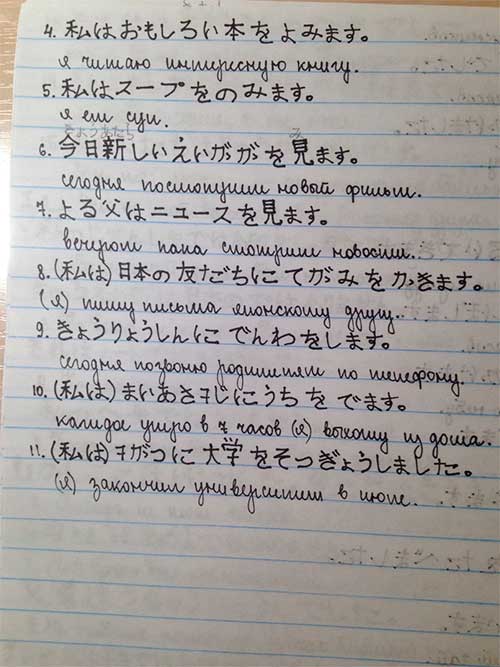 4. 私はおもしろい本をよみます。
я читаю интересную книгу.
5. 私はスープをのみます。
я ем суп.
きょうあたら み
6. 今日新しいえいががを見ます。
сегодня посмотрим новый фильм.
7. よる父はニュースを見ます。
вечером папа смотрит новости.
8. (私は)日本の友だちにてがみをかきます。
(я) пишу письма японскому другу.
9. きょうりょうしんにでんわをします。
сегодня позвоню родителям по телефону.
10. (私は)まいあさ7じにうちをでます。
каждое утро в 7 часов (я) выхожу из дома.
11. (私は)7がつに大学をそつぎょうしました。
(я) закончил университет в июле.